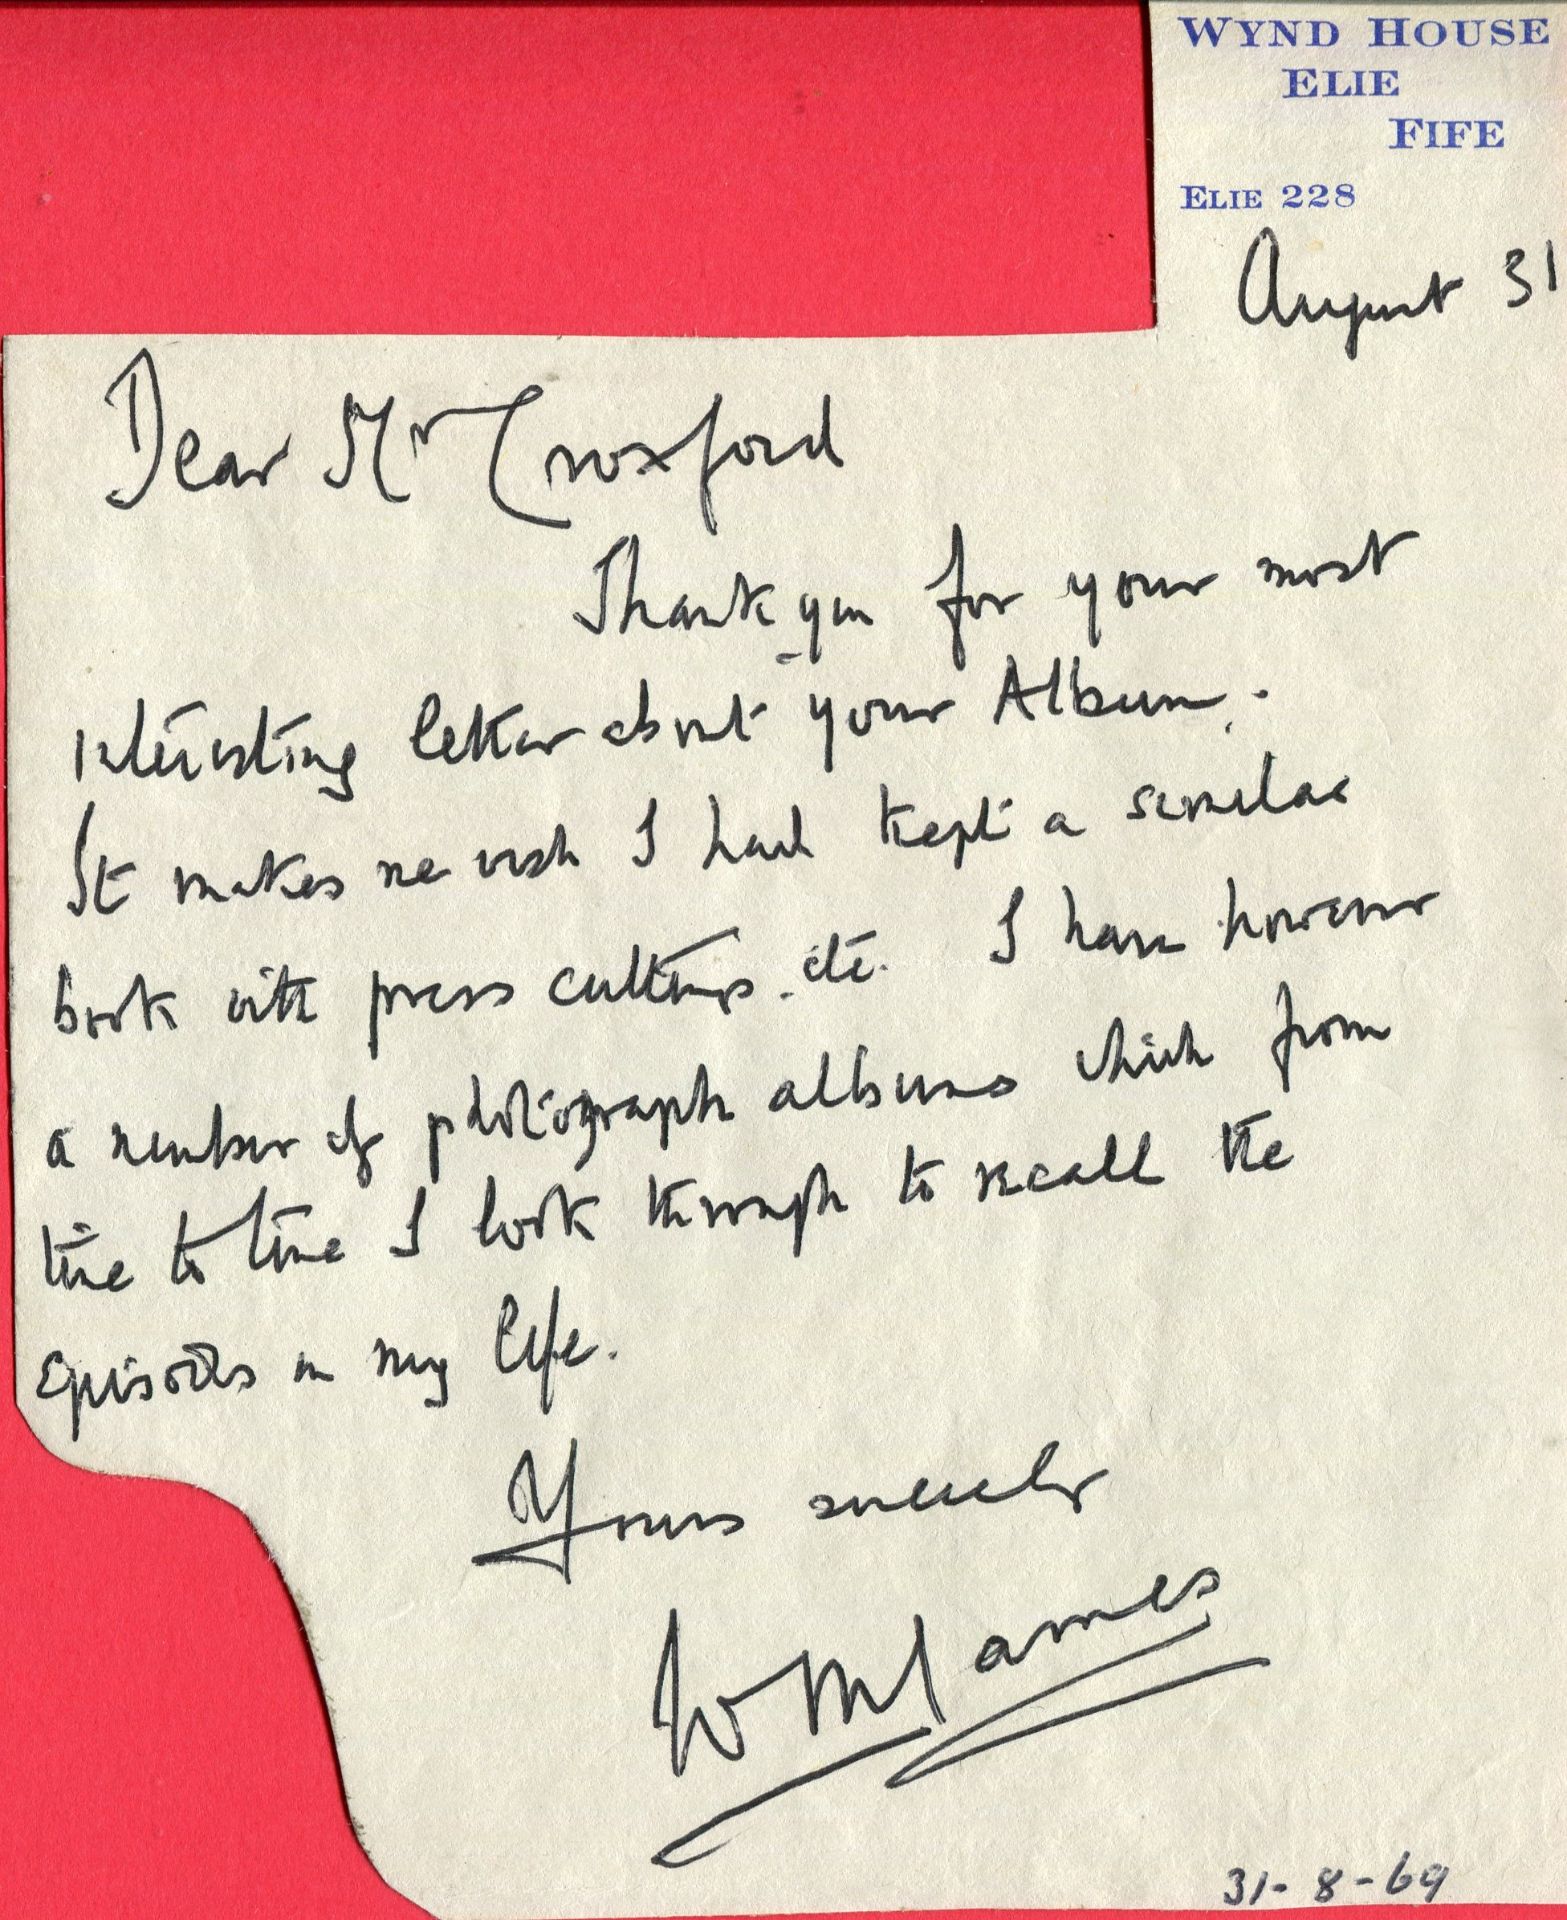 WYND HOUSE
ELIE
FIFE
ELIE 228
August 31
Dear Mr Croxford
Thank you for your most
interesting letter about your Album.
It makes me wish I had kept a similar
book with press cuttings. etc. I have however
a number of photograph albums which from
time to time I look through to recall the
episodes in my life.
Yours sincerely
W M James
31-8-69